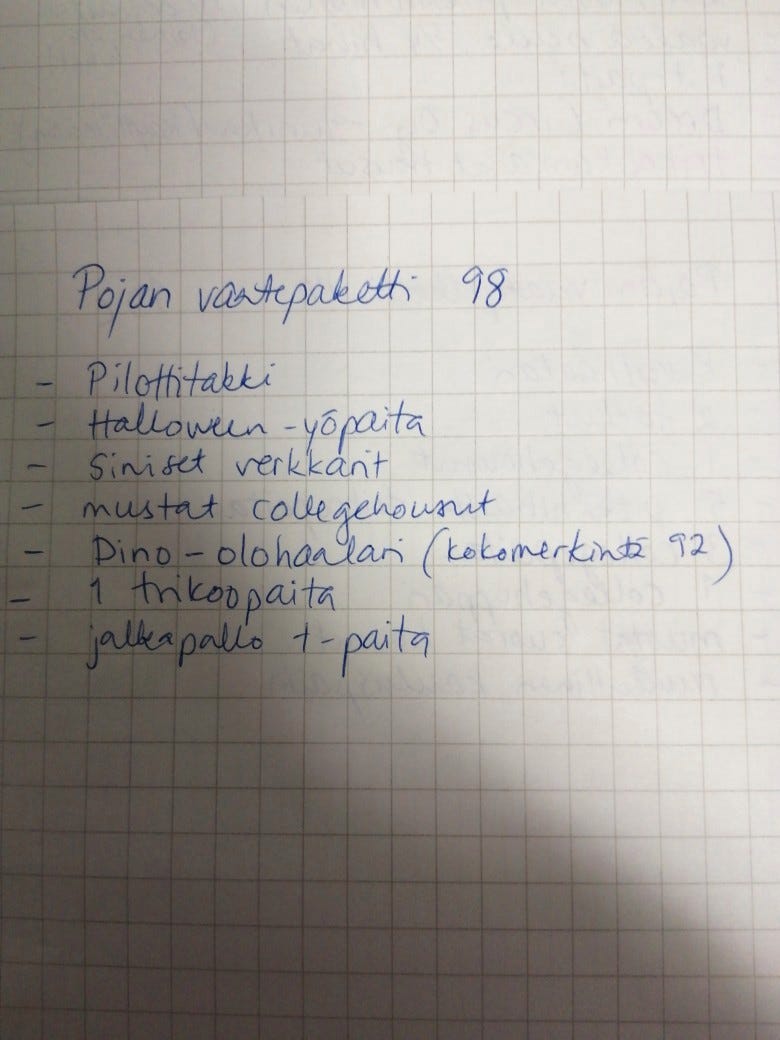 Pojan vaatepaketti 98
- Pilottitakki
- Halloween -yöpaita
- Siniset verkkarit
- mustat collegehousut
- Dino - olohaalari (kokomerkintä 92)
- 1 trikoopaita
- jalkapallo t-paita